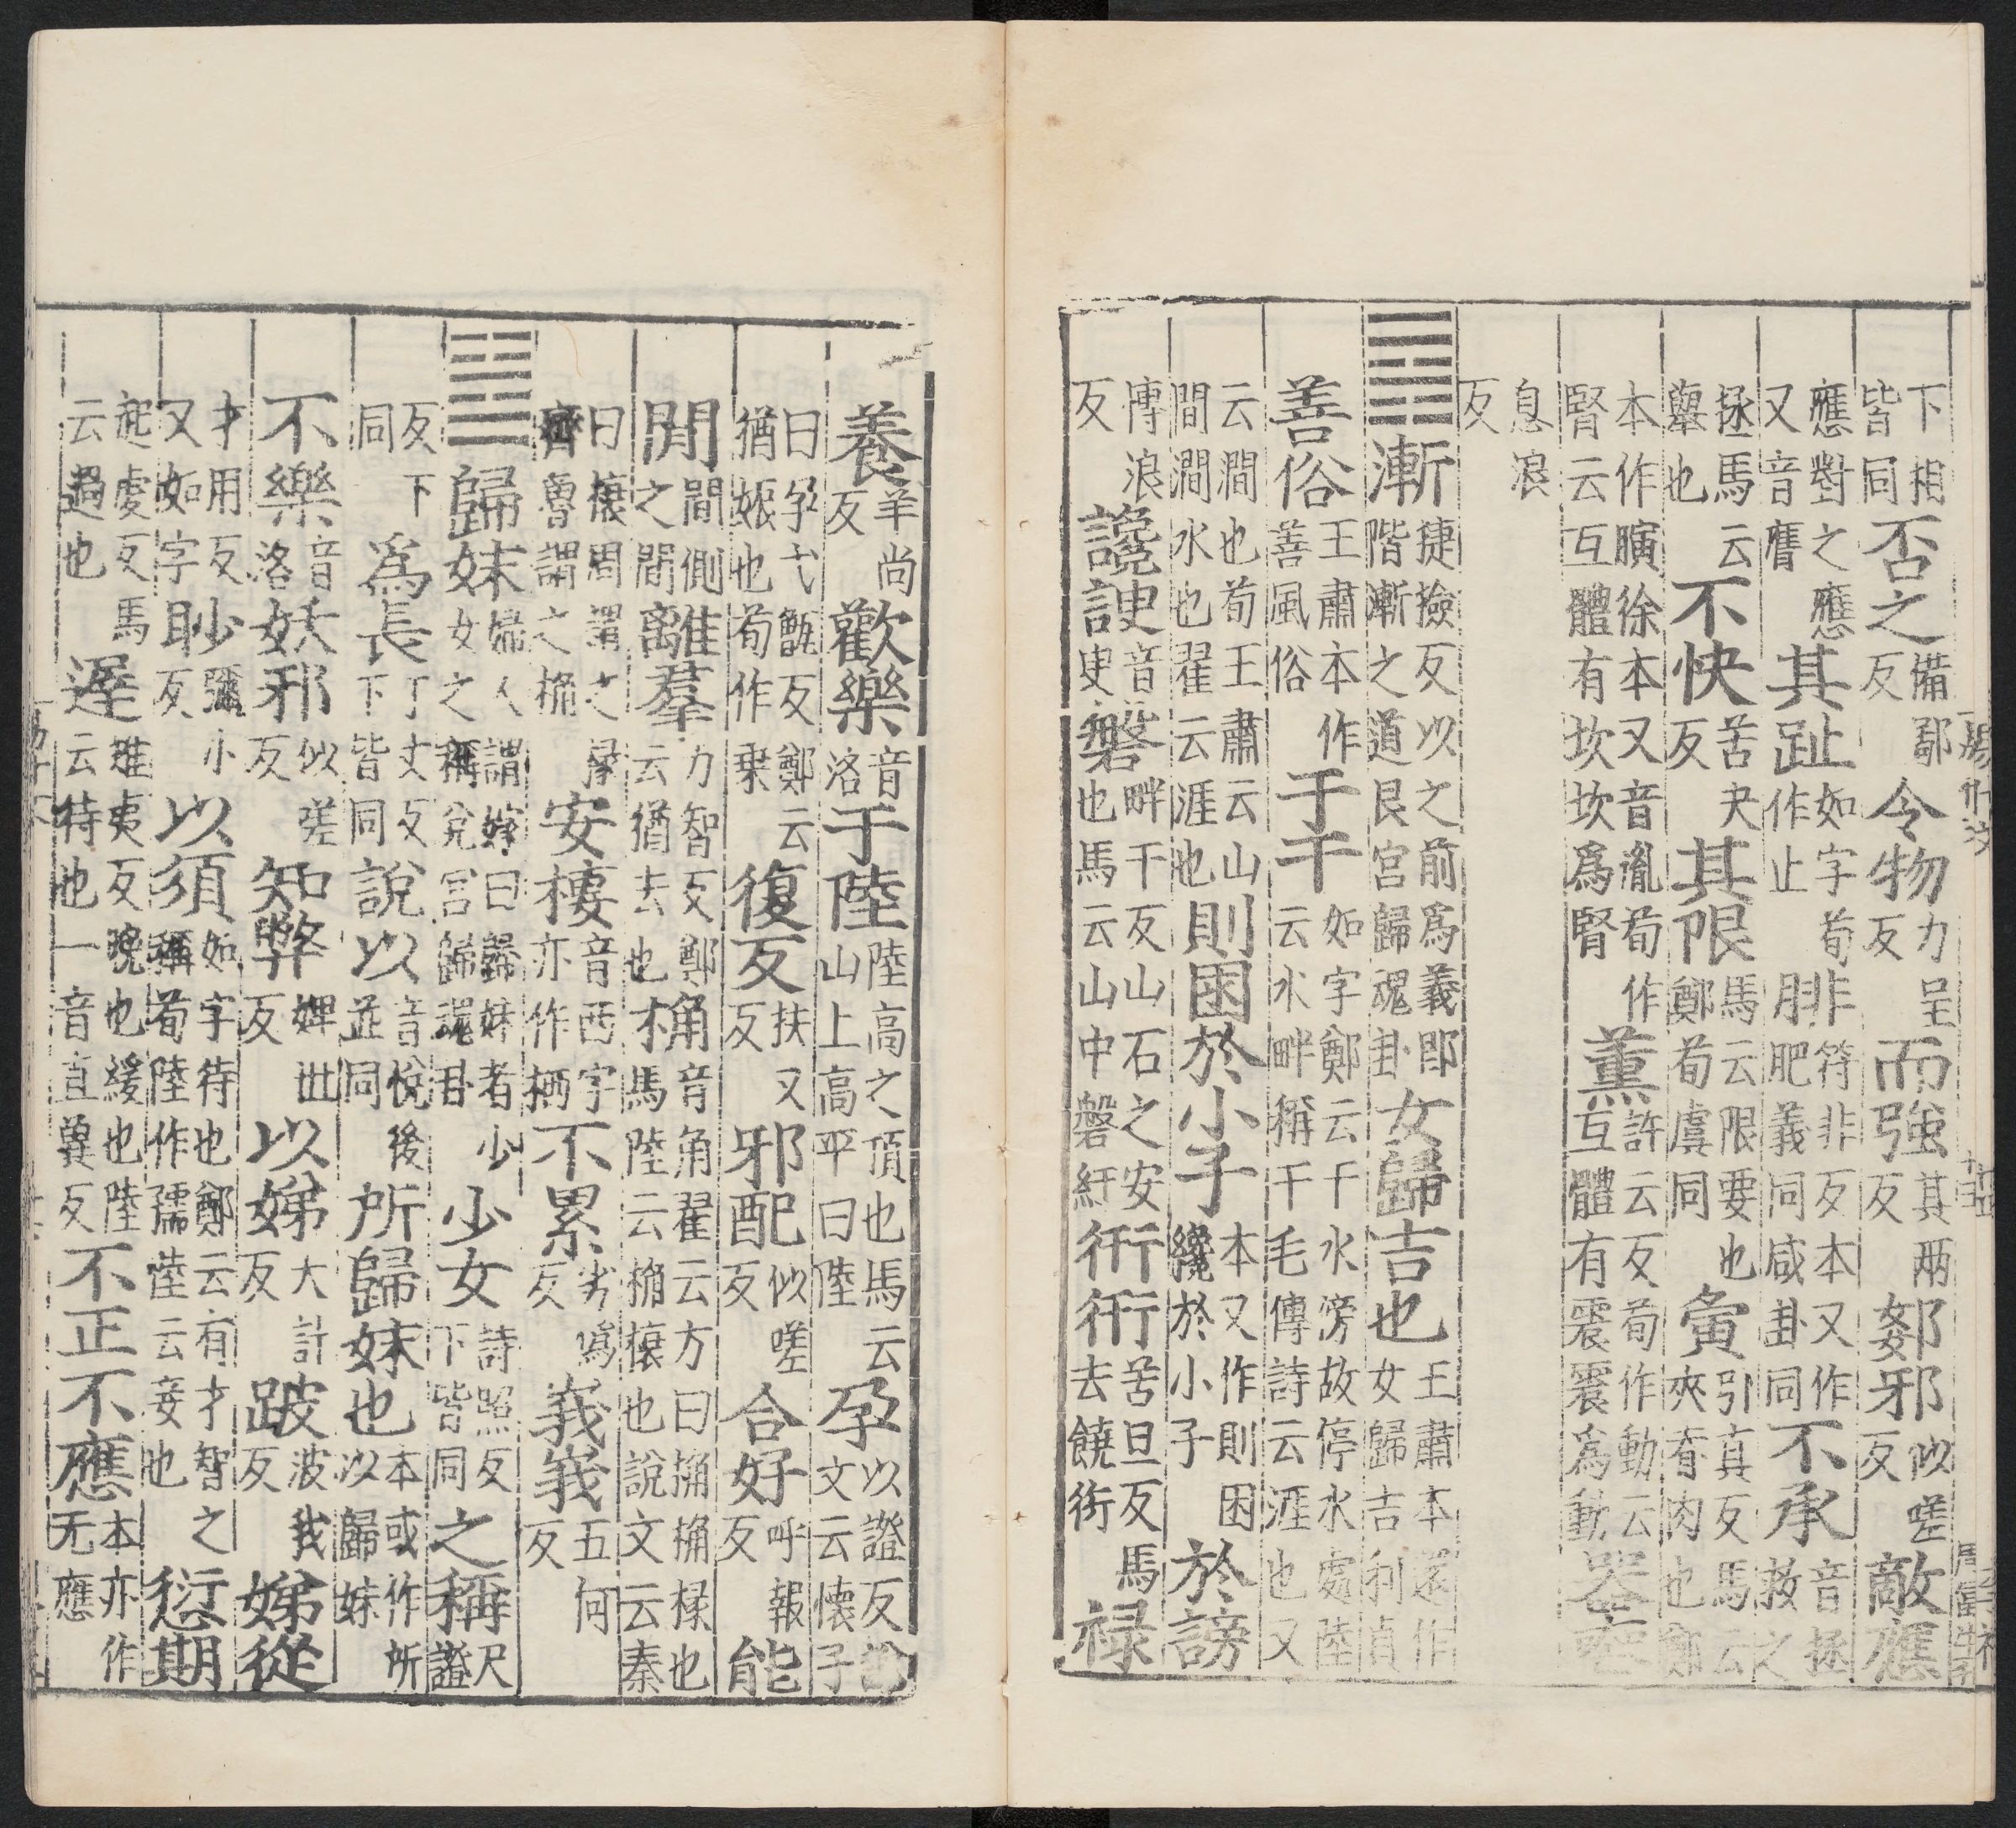 下相皆同否之備鄙反令物力呈反而強其兩反姦邪似嗟反敵應
應對之應又音膺其趾如字荀作止腓符非反本又作肥義同咸卦同不承音拯救之
拯馬云舉也不快苦夬反其限馬云限要也鄭荀虞同夤引真反馬云夾脊肉也鄭
本作𦟘徐本又音胤荀作腎云互體有坎坎爲腎薰許云反荀作動云互體有震震爲動器喪
息浪反
䷴漸捷撿反以之前爲義即階漸之道艮宮歸魂卦女歸吉也王肅本還作女歸吉利貞
善俗王肅本作善風俗于干如字鄭云干水傍故停水處陸云水畔稱干毛傳詩云涯也又
云澗也荀王肅云山間澗水也翟云涯也則困於小子本又作則困讒於小子於謗
博浪反讒諛音臾磐畔干反山石之安也馬云山中磐紆衎衎苦旦反馬云饒衍禄
養羊尚反歡樂音洛于陸陸高之頂也馬云山上高平曰陸孕以證反說文云懷子
曰孕弋甑反鄭云猶娠也荀作乗復反扶又反邪配似嗟反合好呼報反能
閒間側之間離羣力智反鄭云猶去也桷音角翟云方曰桷桷椽也馬陸云桷榱也說文云秦
曰榱周謂之椽齊魯謂之桷安棲音西字亦作栖不累劣偽反峩峩五何反
䷵歸妹婦人謂嫁曰歸妹者少女之稱兌宮歸魂卦少女詩照反下皆同之稱尺證
反下同爲長丁丈反下皆同說以音悅後並同所歸妹也本或作所以歸妹
不樂音洛妖邪似嗟反知弊婢世反以娣大計反跛波我反娣從
才用反又如字眇彌小反以須如字待也鄭云有才智之稱荀陸作嬬陸云妾也愆期
起虔反馬云過也遲雉夷反晚也緩也陸云待也一音直冀反不正不應本亦作无應